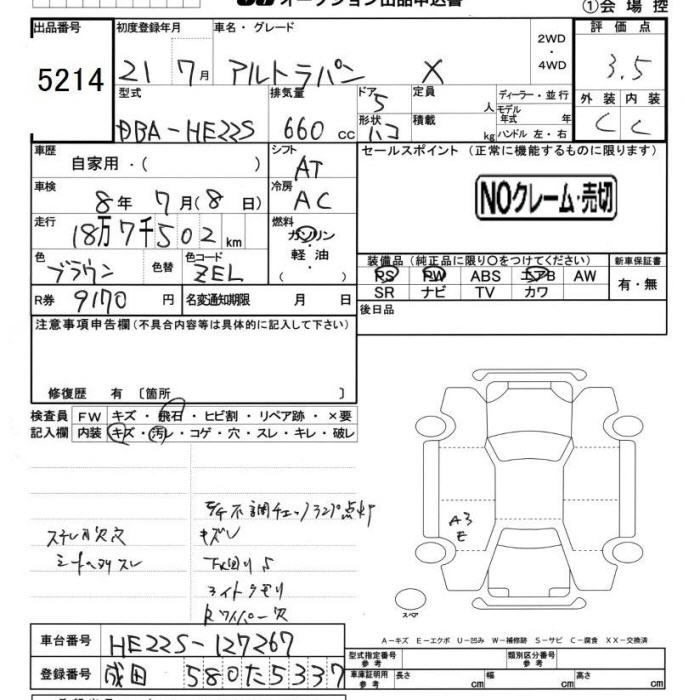 オークション出品申込書
①会場控
出品番号 5214
初度登録年月 21 7月
車名・グレード アルトラパン X
2WD・4WD
評価点 3.5
外装 C 内装 C
型式 DBA-HE22S
排気量 660cc
ドア 5
形状 ハコ
定員 人
積載 kg
ディーラー・並行
モデル年式 年
ハンドル 左・右
車歴 自家用・( )
シフト AT
セールスポイント(正常に機能するものに限ります)
NOクレーム・売切
車検 8年 7月(8日)
冷房 AC
走行 18万7千502km
燃料 ガソリン・軽油・( )
色 ブラウン 色替 色コード ZEL
装備品(純正品に限り○をつけてください)
PS PW ABS エアB AW
SR ナビ TV カワ
新車保証書 有・無
R券 9170円
名変通知期限 月 日
後日品
注意事項申告欄(不具合内容等は具体的に記入して下さい)
修復歴 有〔箇所 〕
検査員 FW キズ・飛石・ヒビ割・リペア跡・×要
記入欄 内装 キズ・汚レ・コゲ・穴・スレ・キレ・破レ
不調チェックランプ点灯
キズ
シート スレ
下回り
ライトクモリ
Rワイパー欠
A3
E
スペア
A-キズ E-エクボ U-凹み W-補修跡 S-サビ C-腐食 XX-交換済
車台番号 HE22S-127267
登録番号 成田 580た5337
型式指定番号 参考
類別区分番号 参考
車庫証明用 参考 長さ cm 幅 cm 高さ cm